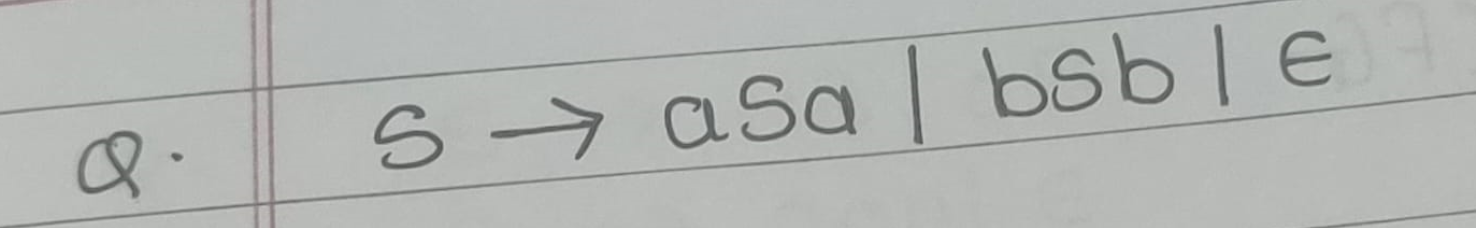 Q. S → aSa | bSb | ϵ